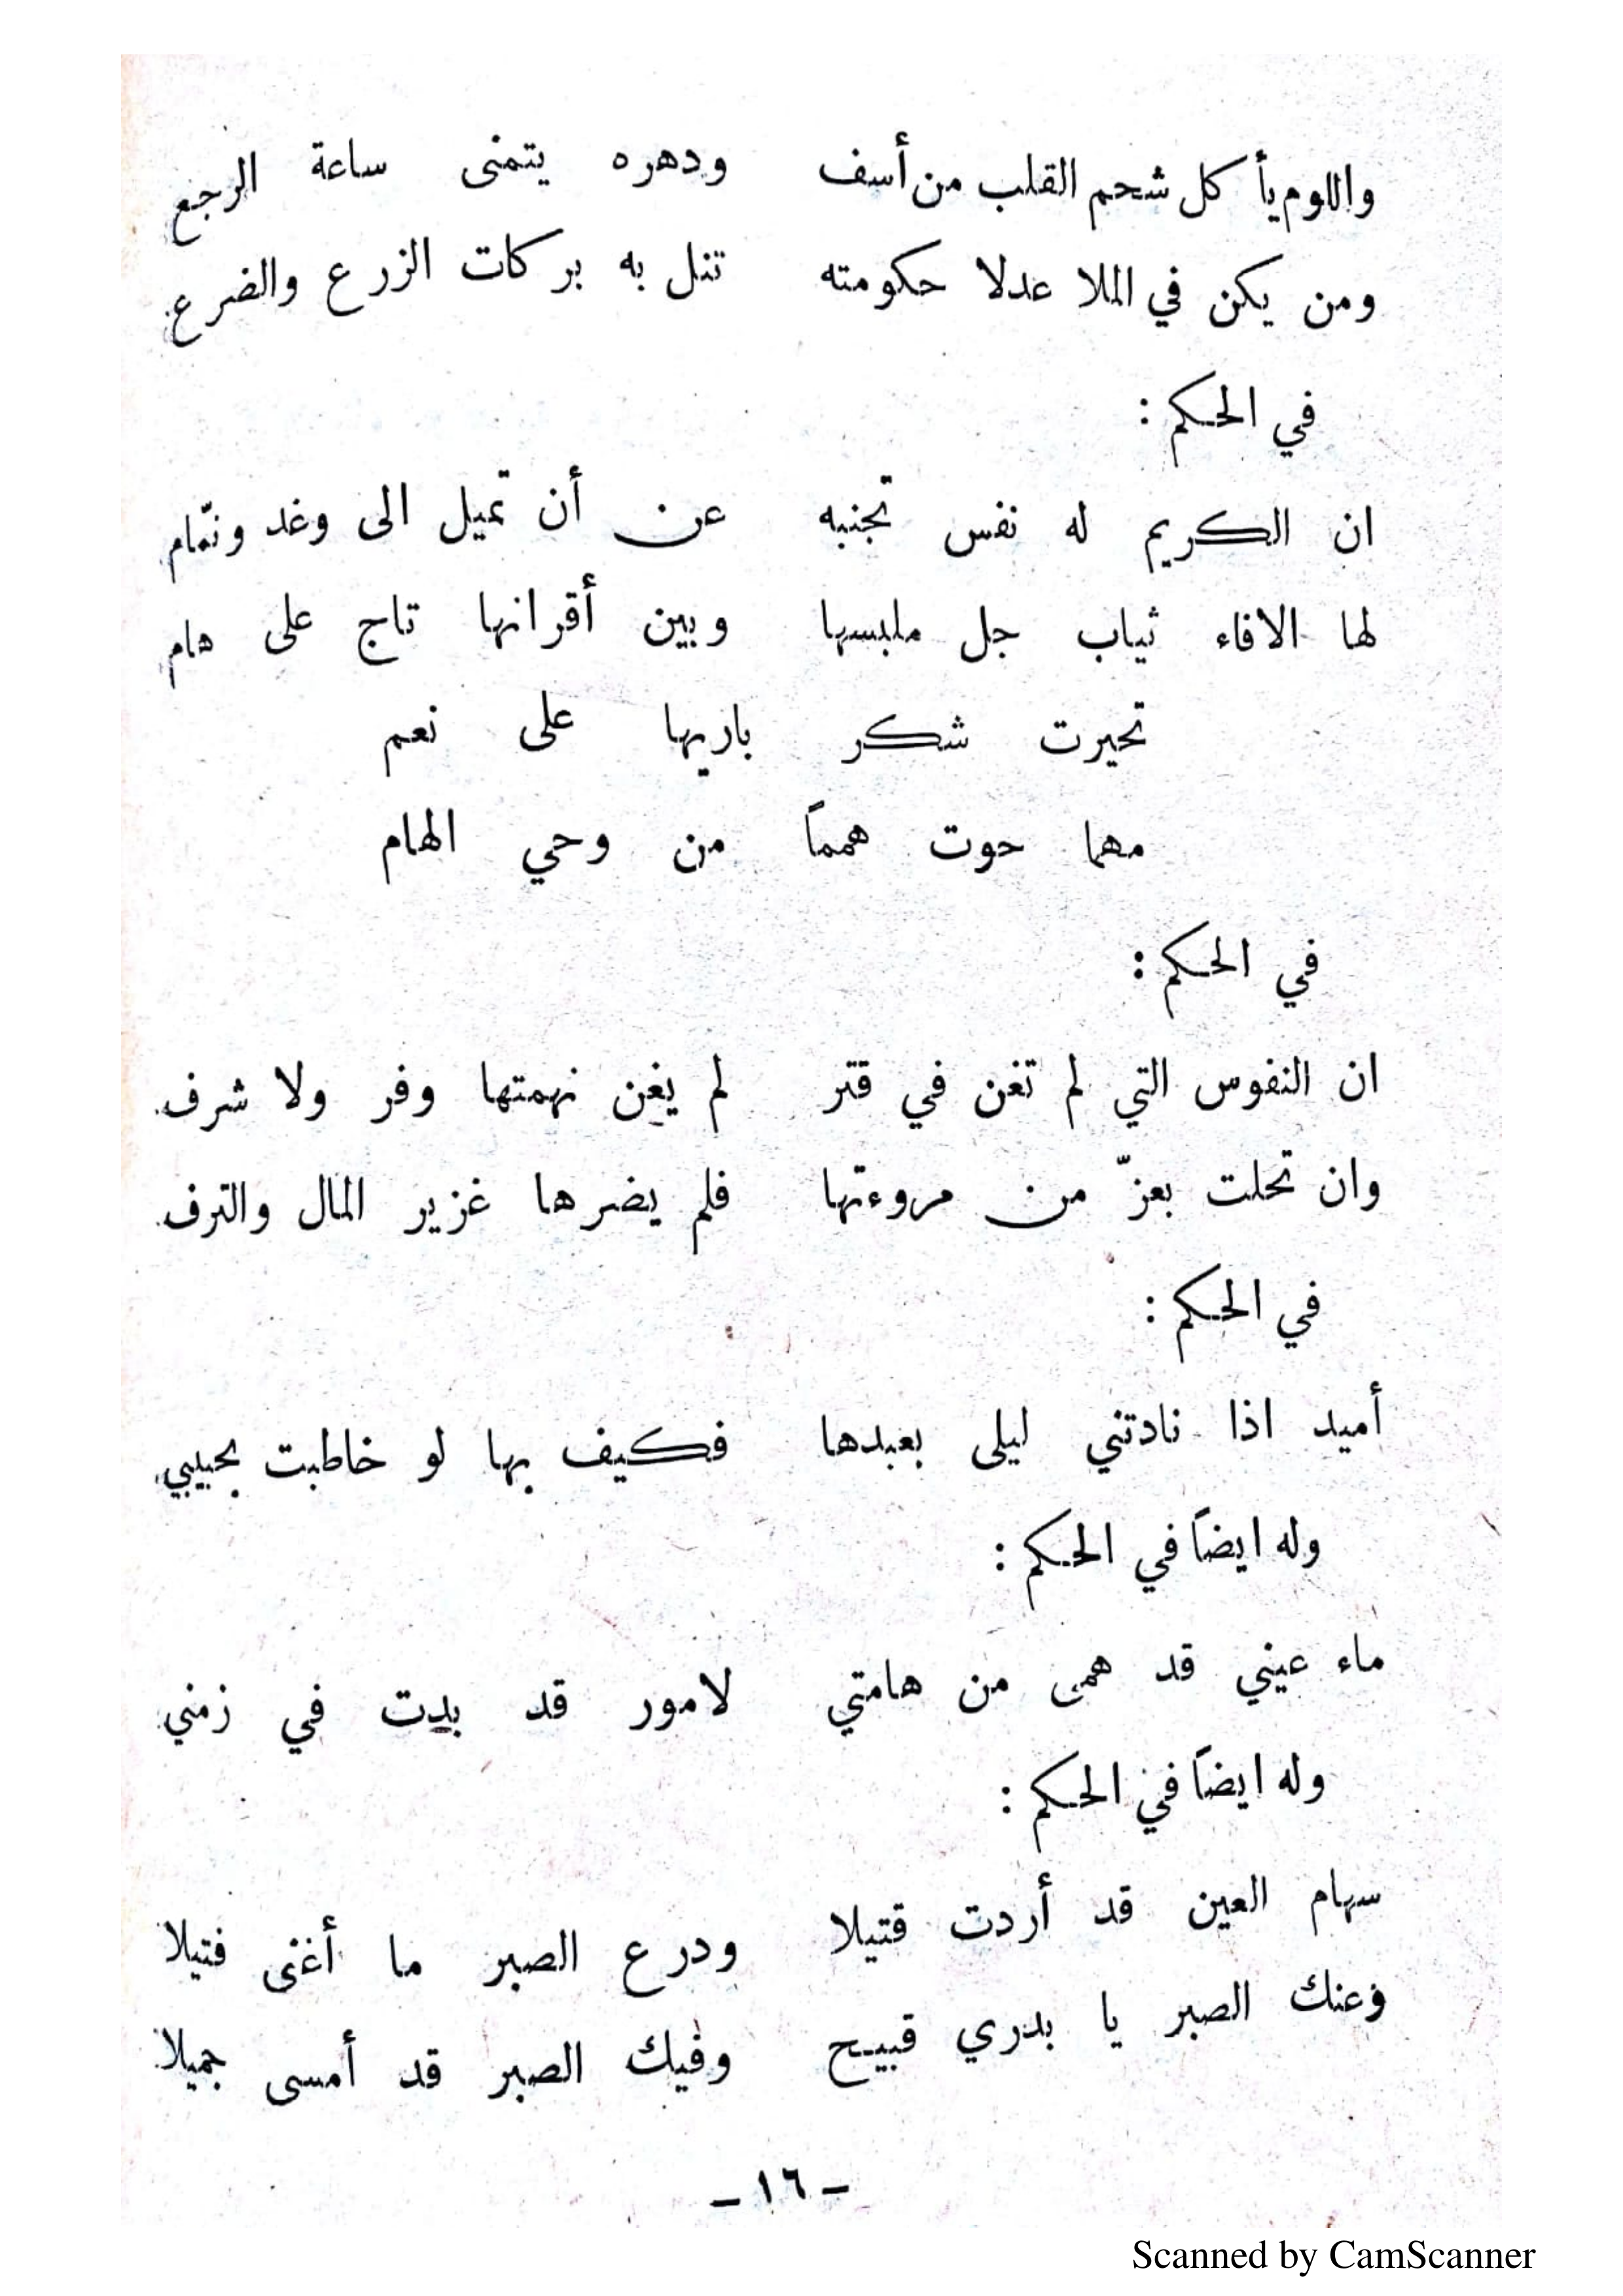 واللوم يأكل شحم القلب من أسف ودهره يتمنى ساعة الرجع
ومن يكن في الملا عدلا حكومته تنل به بركات الزرع والضرع
في الحكم :
ان الكريم له نفس تجنبه عن أن تميل الى وغد ونمّام
لها الاقاء ثياب جل ملبسها وبين أقرانها تاج على هام
تحيرت شكر باريها على نعم
مهما حوت همماً من وحي الهام
في الحكم :
ان النفوس التي لم تغن في قتر لم يغن نهمتها وفر ولا شرف
وان تحلت بعزّ من مروءتها فلم يضرها غزير المال والترف
في الحكم :
أميد اذا نادتني ليلى بعبدها فكيف بها لو خاطبت بحبيبي
وله ايضاً في الحكم :
ماء عيني قد همى من هامتي لامور قد بدت في زمني
وله ايضاً في الحكم :
سهام العين قد أردت قتيلا ودرع الصبر ما أغنى فتيلا
وعنك الصبر يا بدري قبيح وفيك الصبر قد أمسى جميلا
– ١٦ –
Scanned by CamScanner